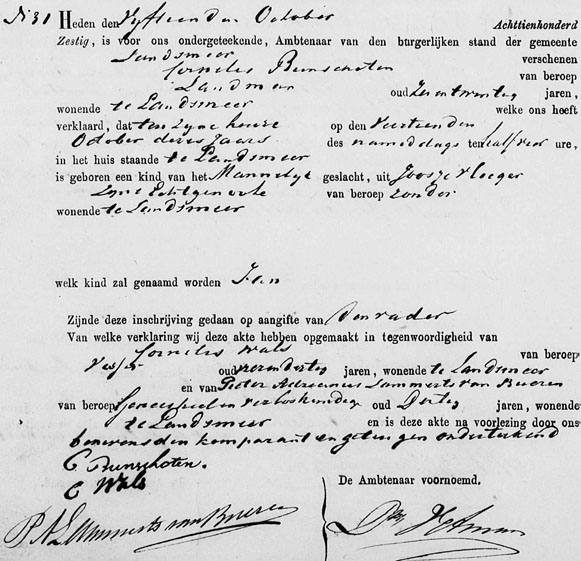 N: 31 Heden den Vyftienden October Achttienhonderd
Zestig, is voor ons ondergeteekende, Ambtenaar van den burgerlijken stand der gemeente
Landsmeer verschenen
Cornelis Bunschoten van beroep
oud zesentwinteg jaren,
wonende te Landsmeer welke ons heeft
verklaard, dat ten zyne huize op den Veertienden
October dezes Jaars des namiddags ten half vier ure,
in het huis staande te Landsmeer
is geboren een kind van het Mannelyk geslacht, uit Joosje Ploeger
zyne Echtgenoote van beroep zonder
wonende te Landsmeer
welk kind zal genaamd worden Jan
Zijnde deze inschrijving gedaan op aangifte van den vader
Van welke verklaring wij deze akte hebben opgemaakt in tegenwoordigheid van
Cornelis Wals van beroep
oud jaren, wonende te Landsmeer
en van Pieter Adrianus Lammerts van Bueren
van beroep Genees heel en verloskundige oud Dertig jaren, wonende
te Landsmeer en is deze akte na voorlezing door ons
benevens den komparant en getuigen onderteekend
C Bunschoten.
C Wals
De Ambtenaar voornoemd.
P. A. Lammerts van Bueren